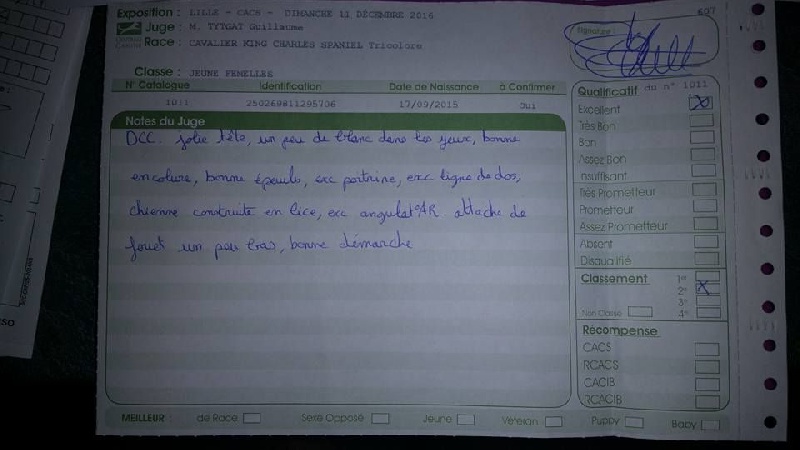 Exposition : LILLE - CACS - DIMANCHE 11 DÉCEMBRE 2016
697
Juge : M. TYTGAT Guillaume
Race : CAVALIER KING CHARLES SPANIEL Tricolore
Signature
Classe : JEUNE FEMELLES
N° Catalogue Identification Date de Naissance à Confirmer
1011 250269811295706 17/09/2015 Oui
Notes du Juge
DCC. jolie tête, un peu de blanc dans les yeux, bonne
encolure, bonne épaule, exc poitrine, exc ligne de dos,
chienne construite en lice, exc angulat° AR attache de
fouet un peu bas, bonne démarche
Qualificatif du n° 1011
Excellent X
Très Bon
Bon
Assez Bon
Insuffisant
Très Prometteur
Prometteur
Assez Prometteur
Absent
Disqualifié
Classement 1er
2e X
3e
Non Classé 4e
Récompense
CACS
RCACS
CACIB
RCACIB
MEILLEUR : de Race Sexe Opposé Jeune Vétéran Puppy Baby